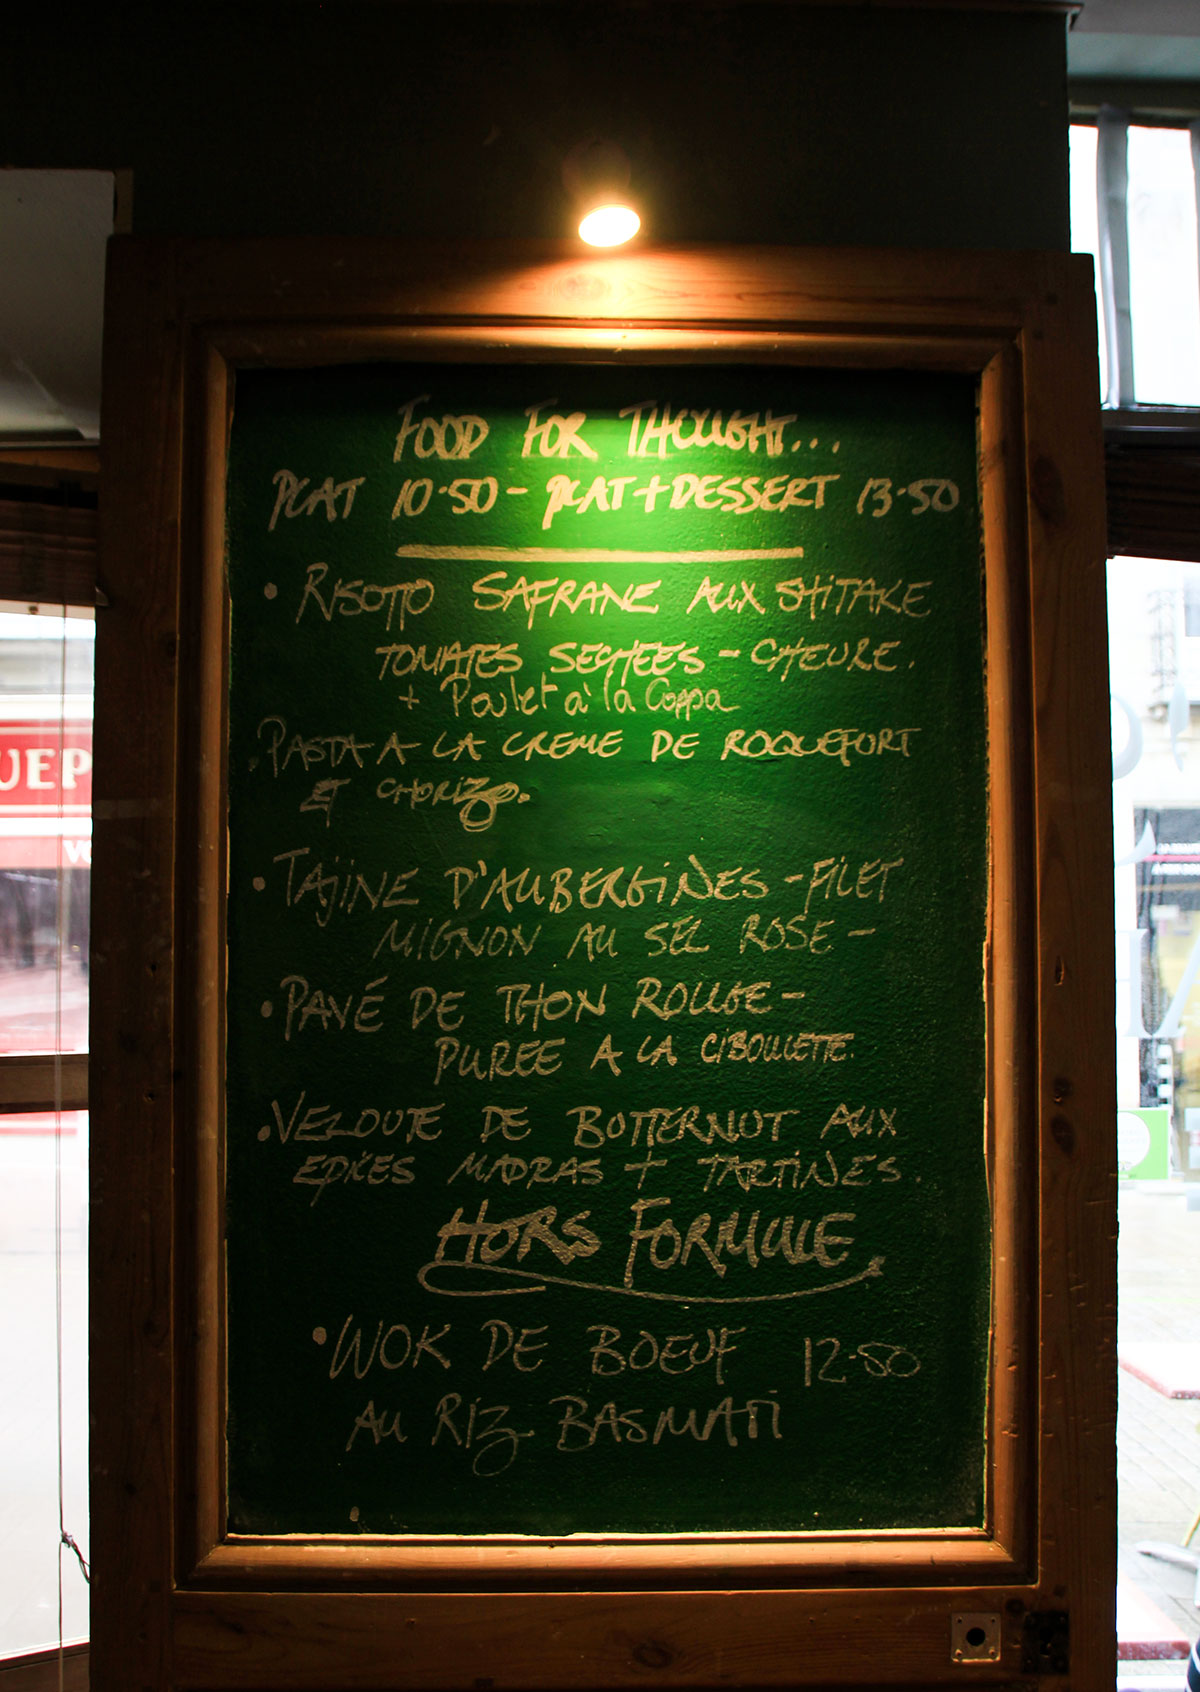 FOOD FOR THOUGHT...
PLAT 10.50 - PLAT + DESSERT 13.50
• RISOTTO SAFRANE AUX SHITAKE
TOMATES SECHEES - CHEVRE.
+ Poulet à la Coppa
• PASTA A LA CREME DE ROQUEFORT
ET CHORIZO.
• TAJINE D'AUBERGINES - FILET
MIGNON AU SEL ROSE -
• PAVÉ DE THON ROUGE -
PUREE A LA CIBOULETTE.
• VELOUTE DE BOTTERNUT AUX
EPICES MADRAS + TARTINES.
HORS FORMULE
• WOK DE BOEUF 12.50
AU RIZ BASMATI
UEP